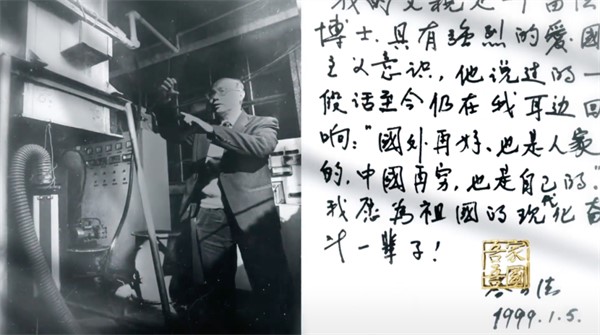 我的父親是一个留法
博士.具有強烈的愛國
主义意识,他说过的一
段话至今仍在我耳边回
响:"國外再好,也是人家
的,中國再穷,也是自己的."
我应為祖國的现代化奋
斗一辈子!
1999.1.5.